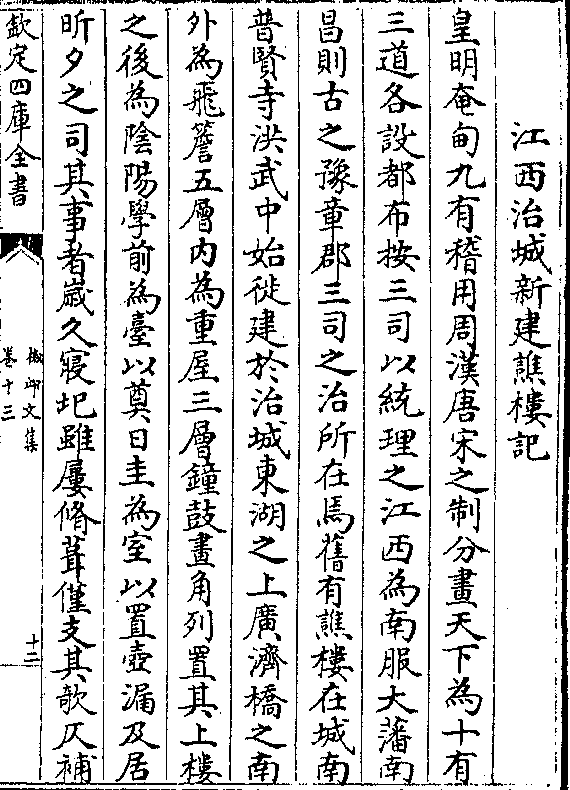 江西治城新建譙樓記
皇明奄甸九有稽用周漢唐宋之制分畫天下為十有
三道各設都布按三司以統理之江西為南服大藩南
昌則古之豫章郡三司之治所在焉舊有譙樓在城南
普賢寺洪武中始徙建於治城東湖之上廣濟橋之南
外為飛簷五層内為重屋三層鐘鼓畫角列置其上樓
之後為陰陽學前為臺以奠日圭為室以置壺漏及居
昕夕之司其事者嵗久寖圮雖屢脩葺僅支其欹仄補
欽定四庫全書
文集
卷十三
十二